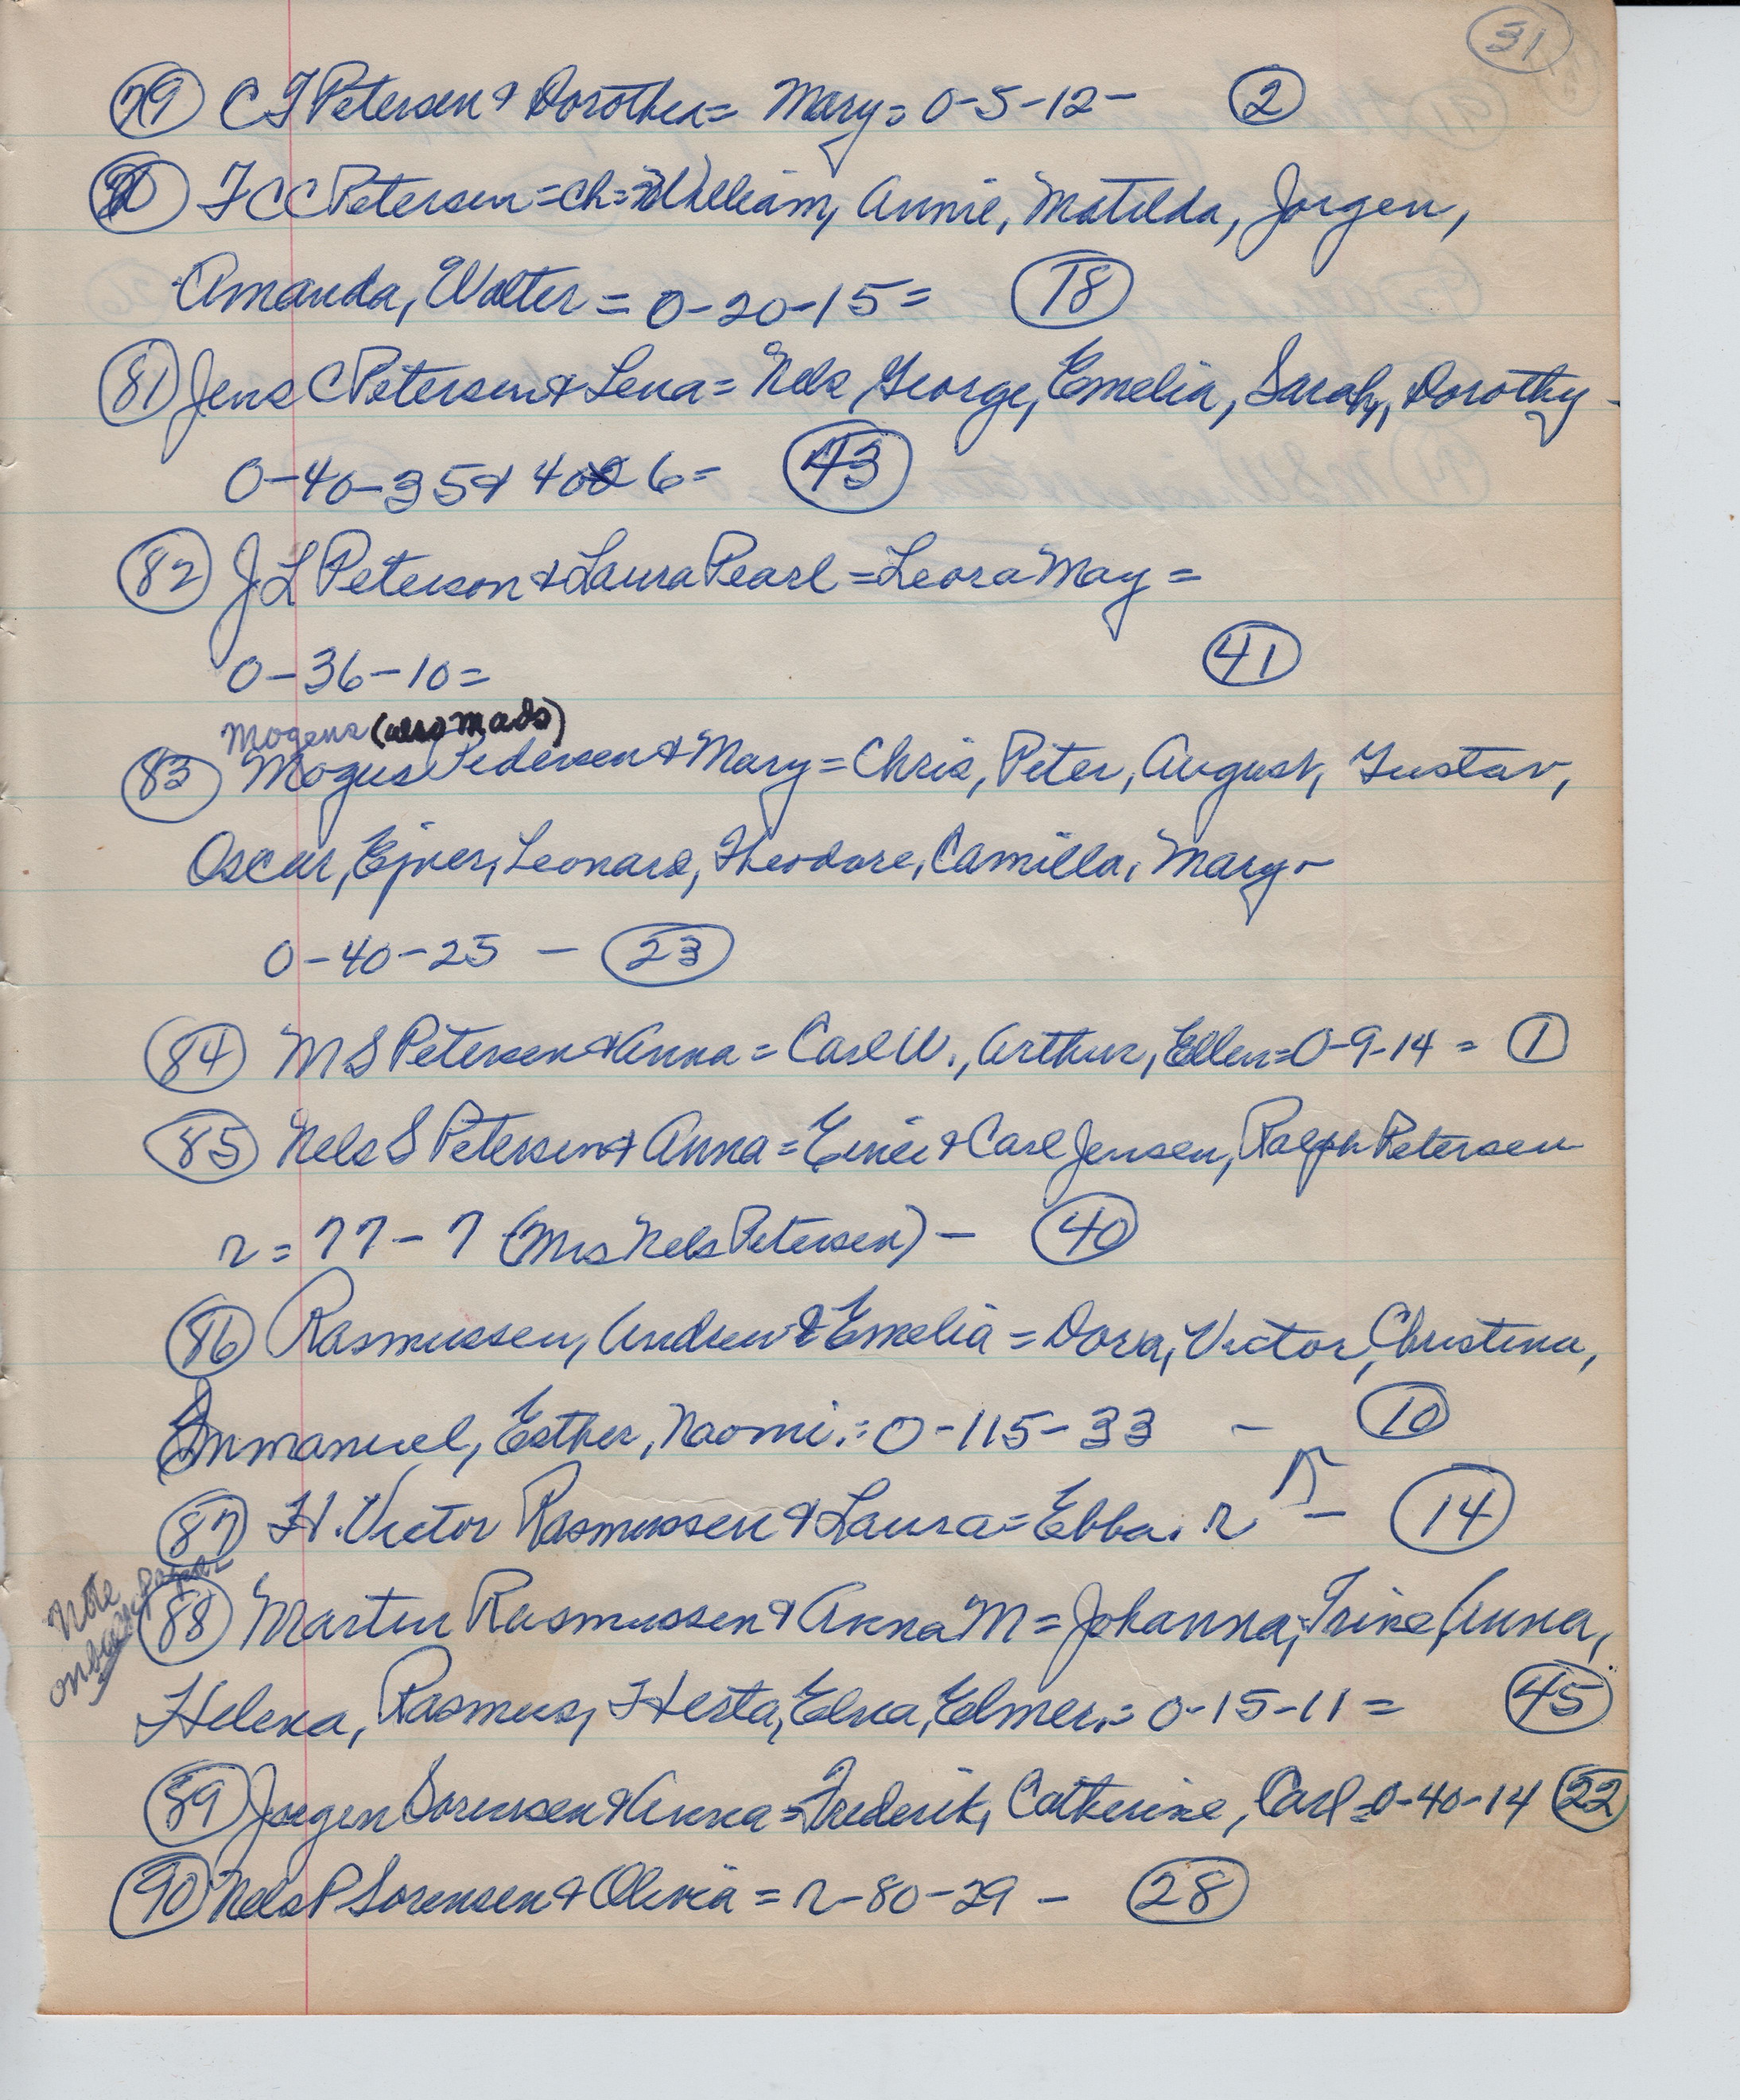 31
79 C J Petersen & Dorothea = Mary = 0-5-12- 2
80 F C C Petersen = ch = William, Annie, Matilda, Jorgen,
Amanda, Walter = 0-20-15 = 18
81 Jens C Petersen & Lena = Nels, George, Emelia, Sarah, Dorothy -
0-40-35 & 40 6 = 43
82 J L Peterson & Laura Pearl = Leora May =
0-36-10 = 41
Mogens (also Mads)
83 Mogus Pedersen & Mary = Chris, Peter, August, Gustav,
Oscar, Ejner, Leonard, Theodore, Camilla, Mary -
0-40-25 - 23
84 M S Petersen & Anna = Carl W., Arthur, Ellen = 0-9-14 = 1
85 Nels S Petersen & Anna = & Carl Jensen, Ralph Petersen
r = 77-7 (Mrs Nels Petersen) - 40
86 Rasmussen, Andrew & Emelia = Dora, Victor, Christina,
Immanuel, Esther, Naomi. = 0-115-33 - 10
87 H. Victor Rasmussen & Laura = Ebba. r - 14
Note
on back page
88 Martin Rasmussen & Anna M = Johanna, Trine, Anna,
Helena, Rasmus, Hesta, Elna, Elmer. = 0-15-11 = 45
89 Jorgen Sorensen & Anna = Frederik, Catherine, Carl = 0-40-14 22
90 Nels P Sorensen & Olivia = r-80-29 - 28